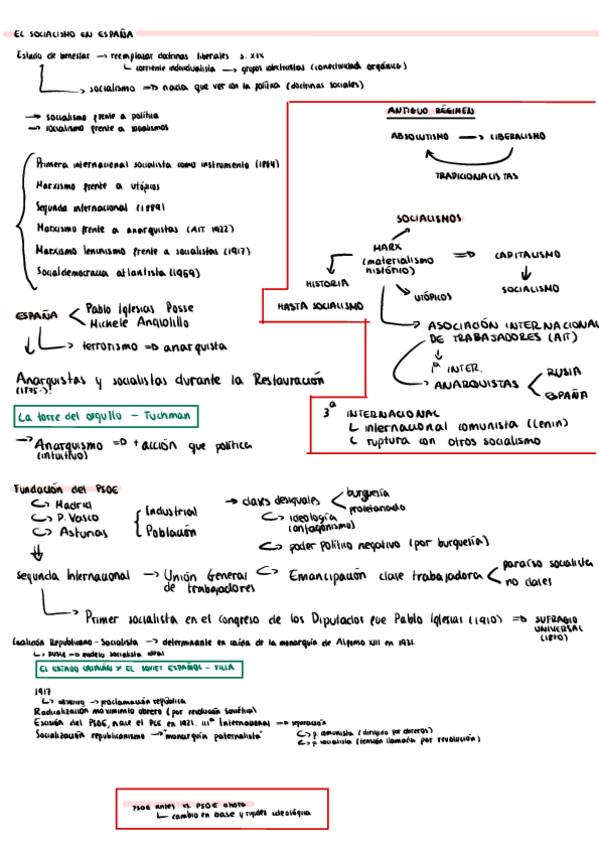 EL SOCIALISMO EN ESPAÑA
Estado de bienestar → reemplazar doctrinas liberales s. XIX
corriente individualista → grupos colectivistas (conectividad orgánica)
socialismo ⇒ nada que ver con la política (doctrinas sociales)
→ socialismo frente a política
→ socialismo frente a socialismos
Primera internacional socialista como instrumento (1864)
Marxismo frente a utópicos
Segunda internacional (1889)
Marxismo frente a anarquistas (AIT 1922)
Marxismo leninismo frente a socialistas (1917)
Socialdemocracia atlantista (1959)
ESPAÑA
Pablo Iglesias Posse
Michele Angiolillo
terrorismo ⇒ anarquista
Anarquistas y socialistas durante la Restauración
(1875-
La torre del orgullo - Tuchman
→ Anarquismo ⇒ + acción que política
(intuitivo)
ANTIGUO RÉGIMEN
ABSOLUTISMO → LIBERALISMO
TRADICIONALISTAS
SOCIALISMOS
MARX
(materialismo
histórico)
⇒ CAPITALISMO
SOCIALISMO
HISTORIA
HASTA SOCIALISMO
UTÓPICOS
ASOCIACIÓN INTERNACIONAL
DE TRABAJADORES (AIT)
1ª INTER.
ANARQUISTAS
RUSIA
ESPAÑA
3ª INTERNACIONAL
internacional comunista (Lenin)
ruptura con otros socialismo
Fundación del PSOE
Madrid
P. Vasco
Asturias
Industrial
Población
→ clases desiguales
burguesía
proletariado
ideología
(antagonismo)
poder político negativo (por burguesía)
Segunda Internacional → Unión General
de trabajadores
Emancipación clase trabajadora
paraíso socialista
no clases
Primer socialista en el Congreso de los Diputados que Pablo Iglesias (1910) ⇒ SUFRAGIO
UNIVERSAL
(1890)
Coalición Republicano-Socialista → determinante en caída de la monarquía de Alfonso XIII en 1931.
→ modelo socialista ideal
EL ESTADO CATALÁN Y EL SOVIET ESPAÑOL - VILLA
1917
objetivo → proclamación república
Radicalización movimiento obrero (por revolución soviética)
Escisión del PSOE, nace el PCE en 1921. IIIª Internacional → separación
p. comunista (dirigido por obreros)
p. socialista (tensión llamada por revolución)
Socialización republicanismo → "monarquía paternalista"
PSOE antes vs PSOE ahora
cambio en base y rigidez ideológica